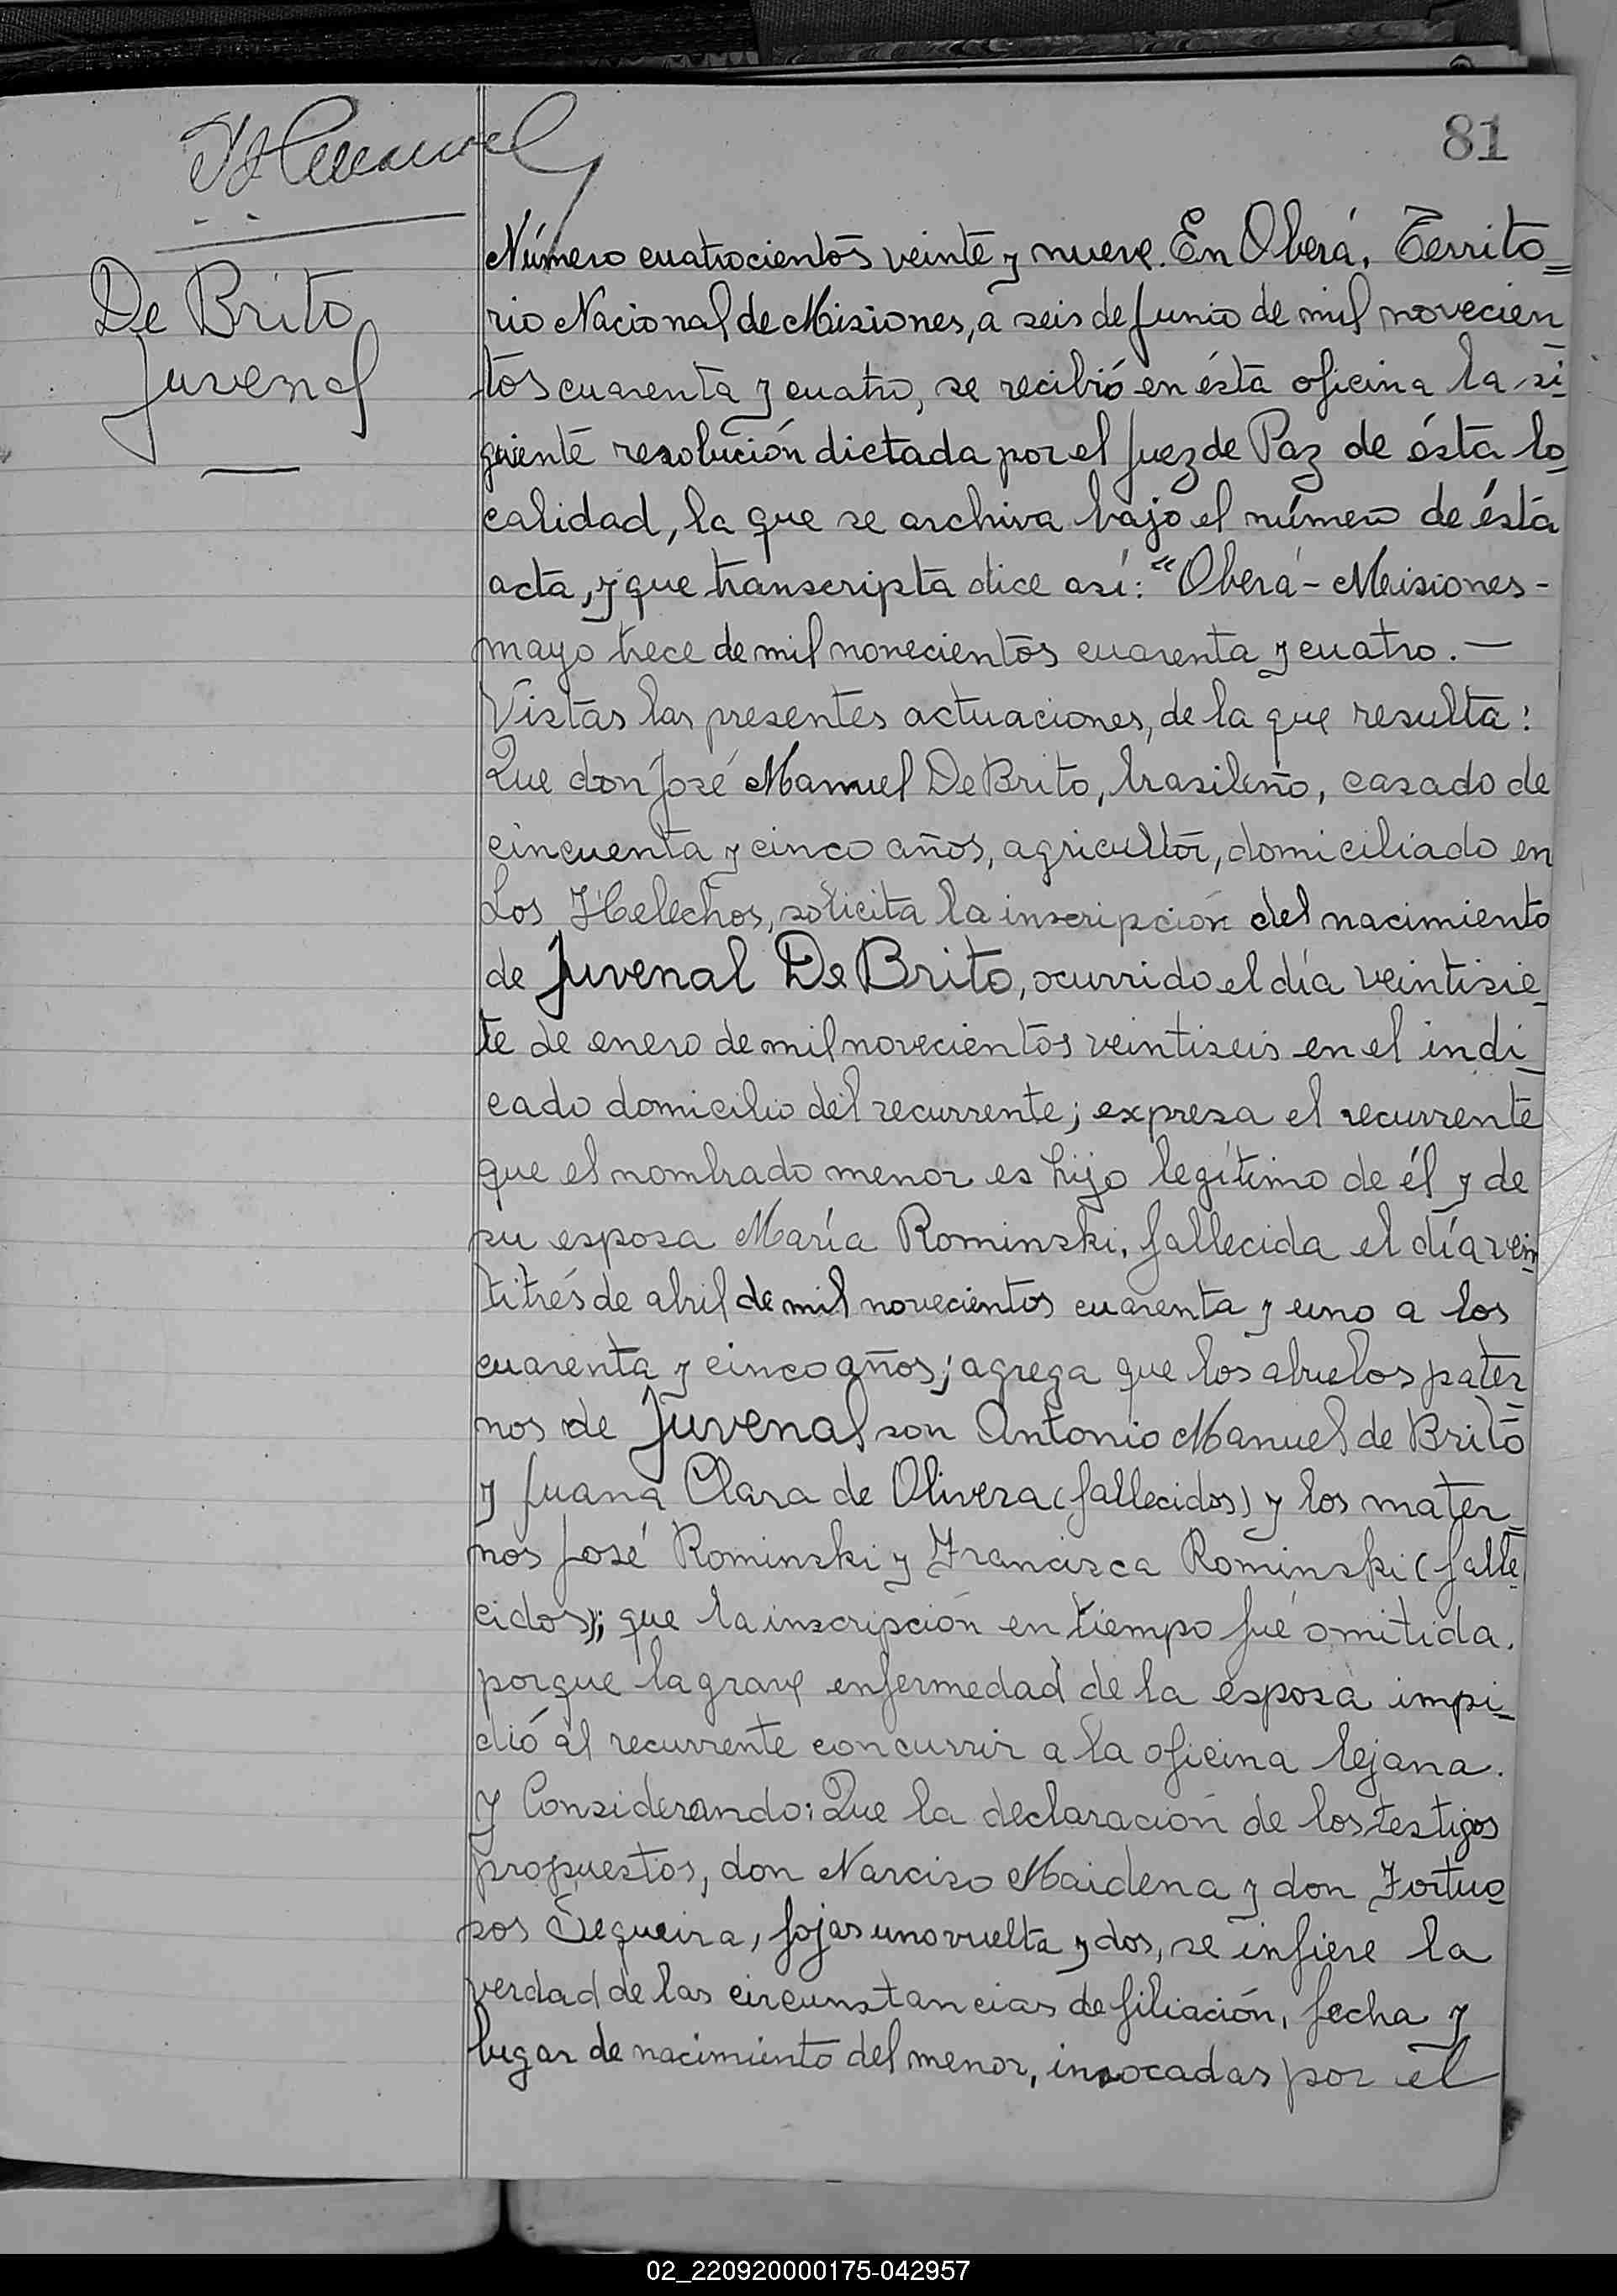 81
De Brito
Juvenal
Número cuatrocientos veinte y nueve. En Oberá, Territo=
rio Nacional de Misiones, a seis de Junio de mil novecien
tos cuarenta y cuatro, se recibió en ésta oficina la si
guiente resolución dictada por el Juez de Paz de ésta lo
calidad, la que se archiva bajo el número de ésta
acta, y que transcripta dice así: "Oberá - Misiones -
mayo trece de mil novecientos cuarenta y cuatro. —
Vistas las presentes actuaciones, de la que resulta:
Que don José Manuel De Brito, brasileño, casado de
cincuenta y cinco años, agricultor, domiciliado en
Los Helechos, solicita la inscripción del nacimiento
de Juvenal De Brito, ocurrido el día veintisie_
te de enero de mil novecientos veintiseis en el indi_
cado domicilio del recurrente; expresa el recurrente
que el nombrado menor es hijo legítimo de él y de
su esposa María Rominski, fallecida el día vein
titrés de abril de mil novecientos cuarenta y uno a los
cuarenta y cinco años; agrega que los abuelos pater=
nos de Juvenal son Antonio Manuel de Brito
y Juana Clara de Olivera (fallecidos) y los mater=
nos José Rominski y Francisca Rominski (falle
cidos); que la inscripción en tiempo fué omitida.
porque la grave enfermedad de la esposa impi_
dió al recurrente concurrir a la oficina lejana.
Y Considerando: Que la declaración de los testigos
propuestos, don Narciso Maidena y don Fortuo
sos Sequeira, fojas uno vuelta y dos, se infiere la
verdad de las circunstancias de filiación, fecha y
lugar de nacimiento del menor, invocadas por el
02_220920000175-042957